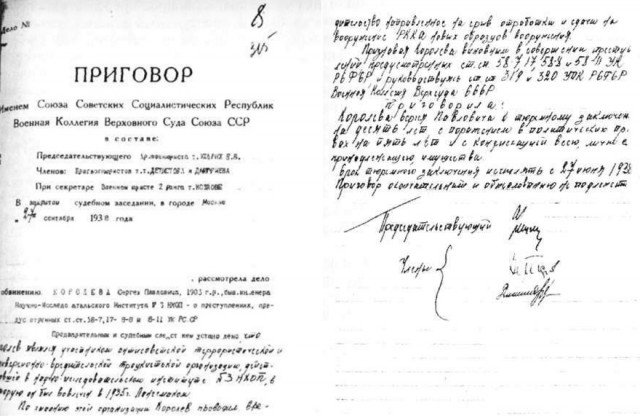 Дело №
8
ПРИГОВОР
Именем Союза Советских Социалистических Республик
Военная Коллегия Верховного Суда Союза ССР
в составе:
Председательствующего
Членов:
При секретаре Военном юристе 2 ранга т.
В закрытом судебном заседании, в городе Москве
27 сентября 1938 года
рассмотрела дело
обвинению КОРОЛЕВА Сергея Павловича, 1903 г.р., быв. инженера
Научно-Исследовательского Института № 3 НКОП - в преступлениях, пре-
дусмотренных ст.ст. 58-7, 17- 8-8 и 8-11 УК РСФСР
Предварительным и судебным следствием установлено, что
Королев являлся участником антисоветской террористической и
диверсионно-вредительской троцкистской организации, дейст-
вовавшей в научно-исследовательском институте №3 НКОП, в
которую он был вовлечен в 1935г. Лангемаком
По заданию этой организации Королев проводил вре-
дительство направленное на срыв отработки и сдачи на
вооружение РККА новых образцов вооружения.
Признавая Королева виновным в совершении преступ-
лений предусмотренных ст.ст. 58-7, 17-58-8 и 58-11 УК
РСФСР и руководствуясь ст.ст. 319 и 320 УПК РСФСР
Военная Коллегия Верхсуда СССР
Приговорила:
Королева Сергея Павловича к тюремному заключен.
на десять лет с поражением в политических пра-
вах на пять лет и с конфискацией всего, лично ему
принадлежащего имущества.
Срок тюремного заключения исчислять с 27 июня 1938
Приговор окончательный и обжалованию не подлежит
Председательствующий
Члены